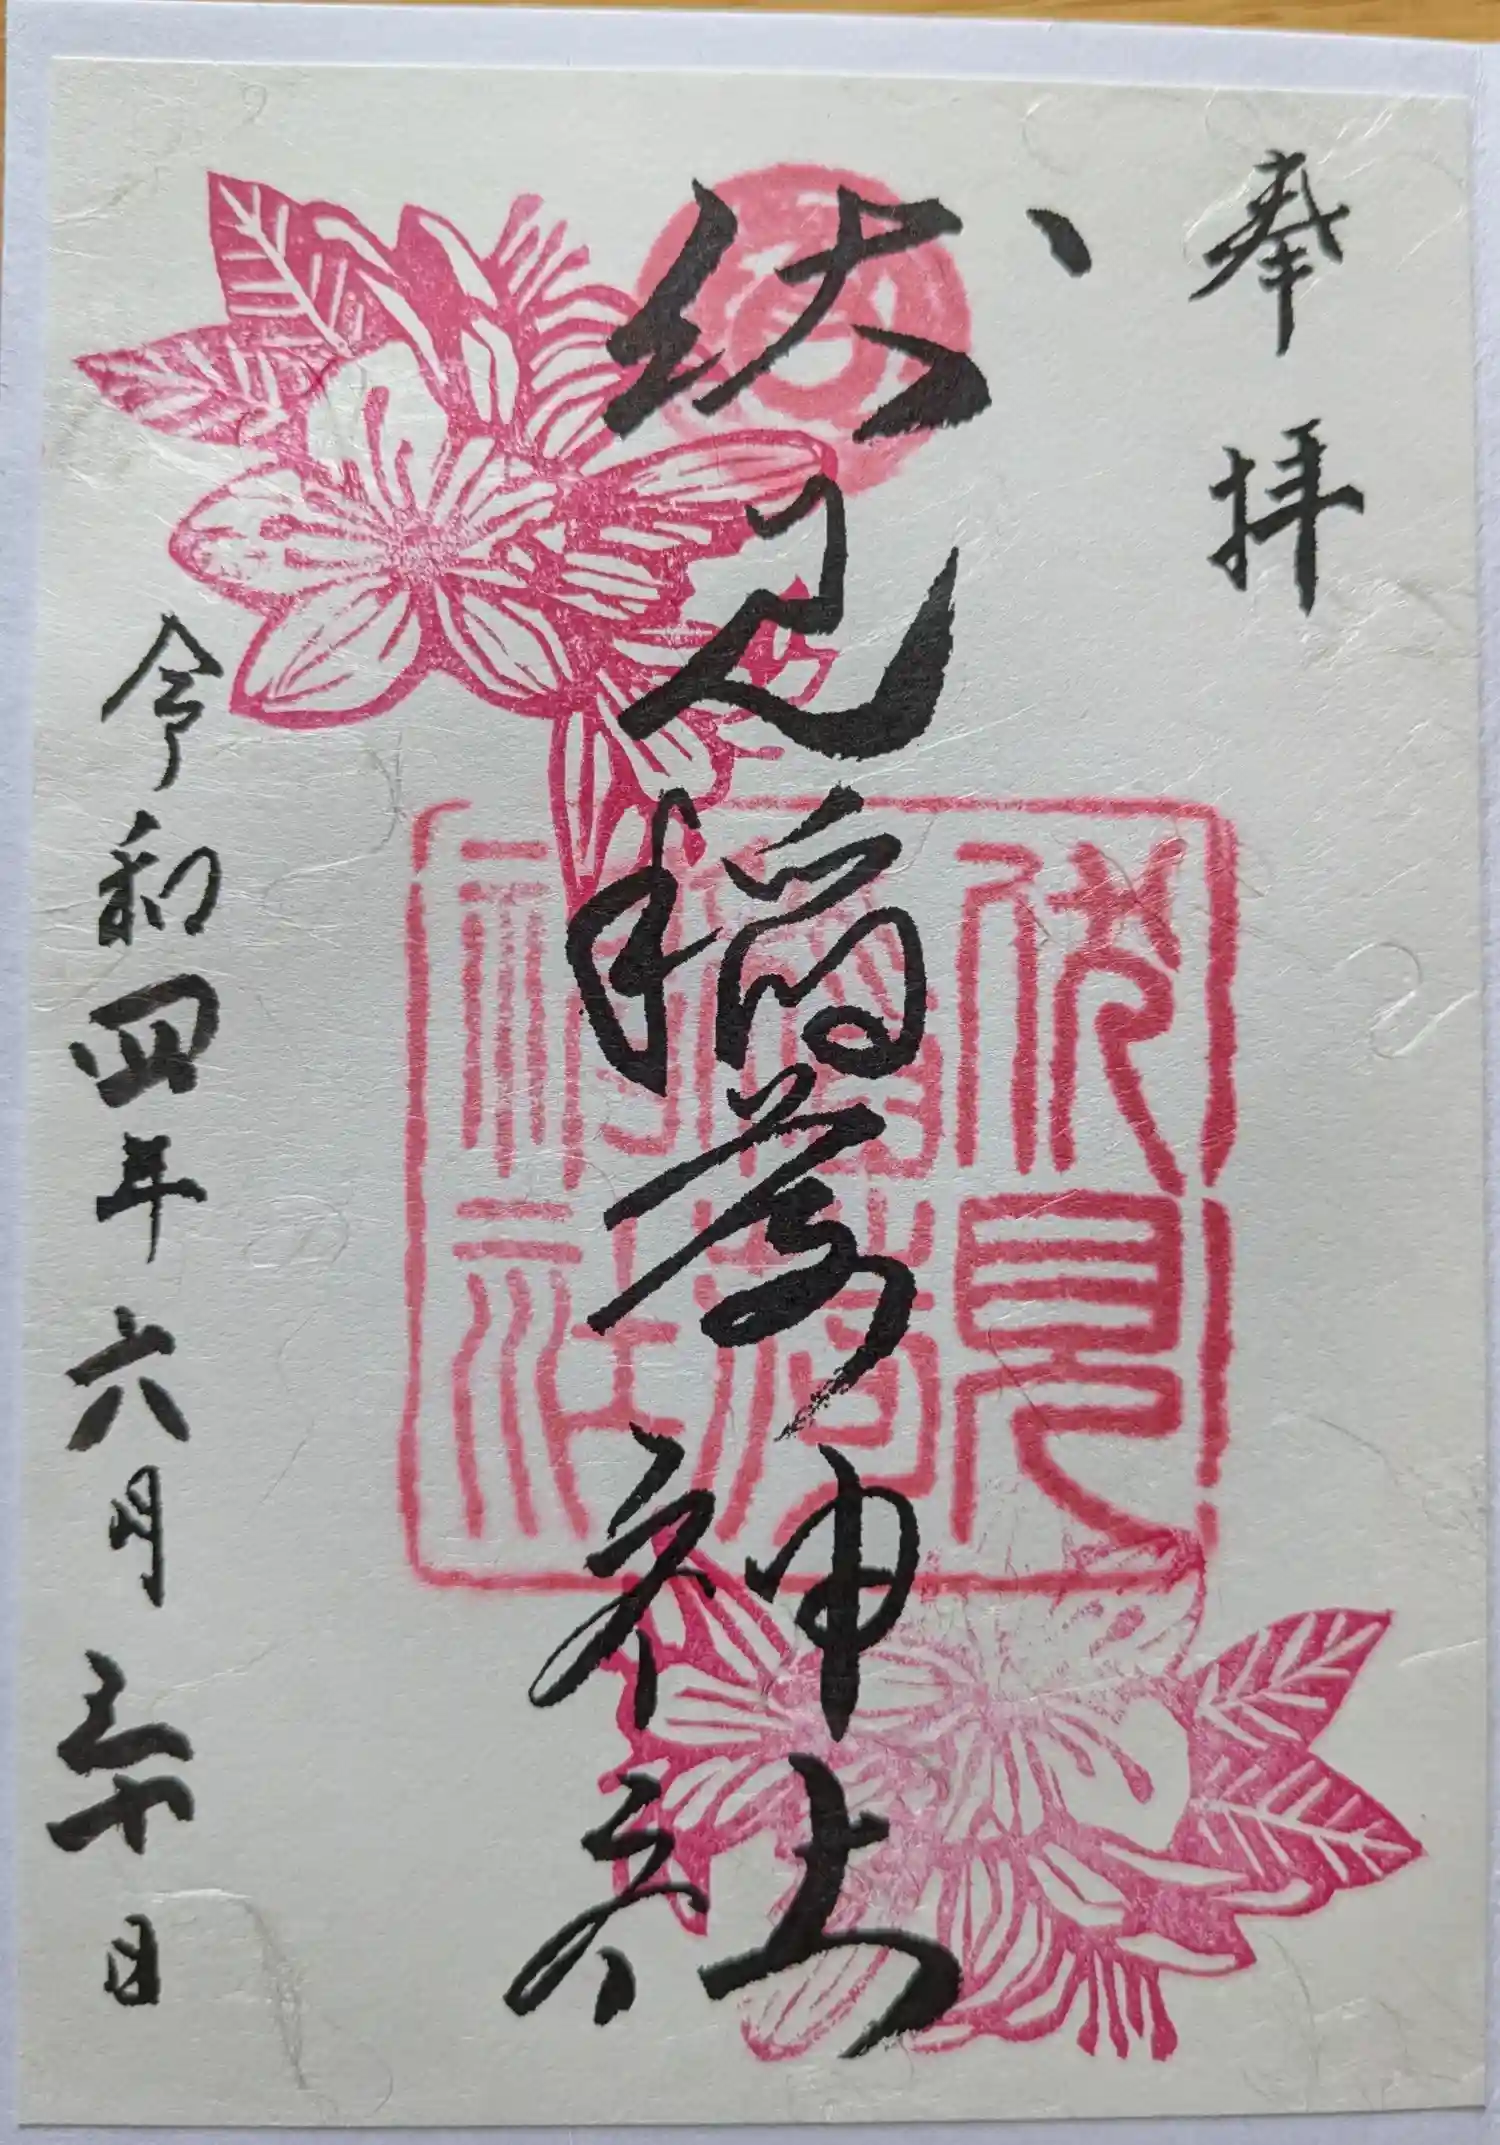 奉拝
伏見稲荷神社
伏見
稲荷
神社
令和四年六月三十日